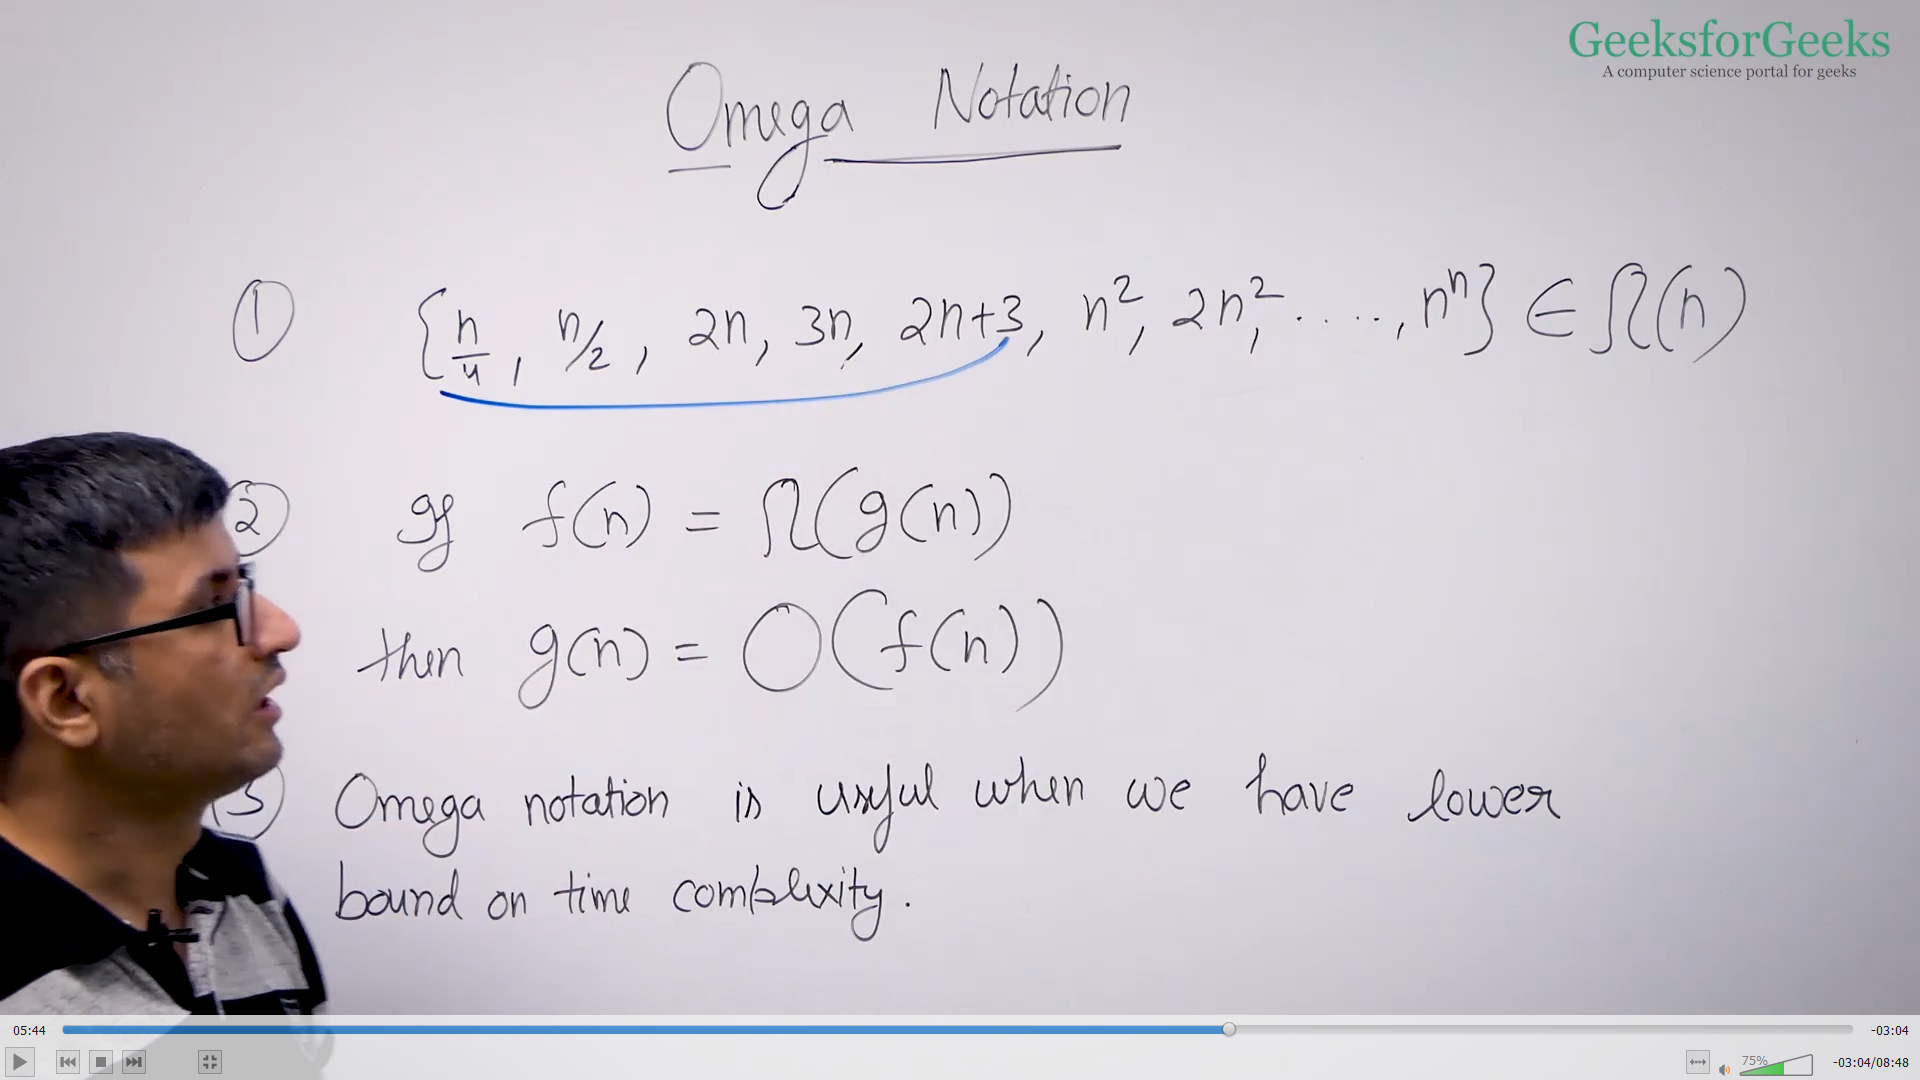 GeeksforGeeks
A computer science portal for geeks
Omega Notation
① {n/4, n/2, 2n, 3n, 2n+3, n², 2n², ...., nⁿ} ∈ Ω(n)
② If f(n) = Ω(g(n))
then g(n) = O(f(n))
③ Omega notation is useful when we have lower
bound on time complexity.
05:44 -03:04
75% -03:04/08:48